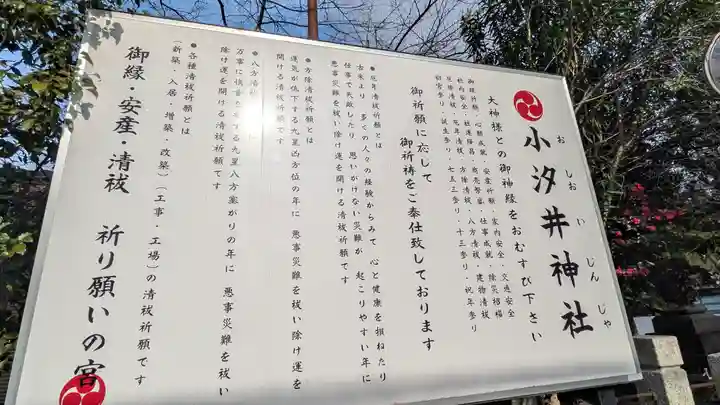 小汐井神社
おしおいじんじゃ
大神様との御神縁をおむすび下さい
御縁祈願・心願成就・安産祈願・家内安全・交通安全
社内安全・社運隆昌・商売繁盛・仕事成就・除災招福
厄除清祓・厄年清祓・方除清祓・八方清祓・建物清祓
初宮参り・誕生参り・七五三参り・十三参り・祝年参り
御祈願に応じて
御祈祷をご奉仕致しております
●厄年清祓祈願とは
古来より 多くの人々の経験からみて 心と健康を損ねたり
仕事で失敗したり 思いがけない災難が 起こりやすい年に
悪事災難を祓い除け運を開ける清祓祈願です
●方除清祓祈願とは
運気が低下する九星凶方位の年に 悪事災難を祓い除け運を
開ける清祓祈願です
●八方清
万事に慎重を要する九星八方塞がりの年に 悪事災難を祓い
除け運を開ける清祓祈願です
●各種清祓祈願とは
(新築・入居・増築・改築)(工事・工場)の清祓祈願です
御縁・安産・清祓 祈り願いの宮